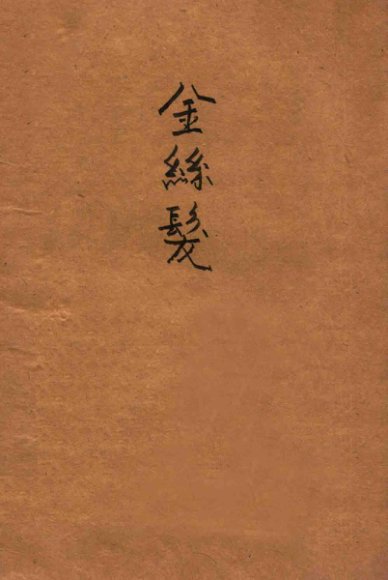 金絲髮